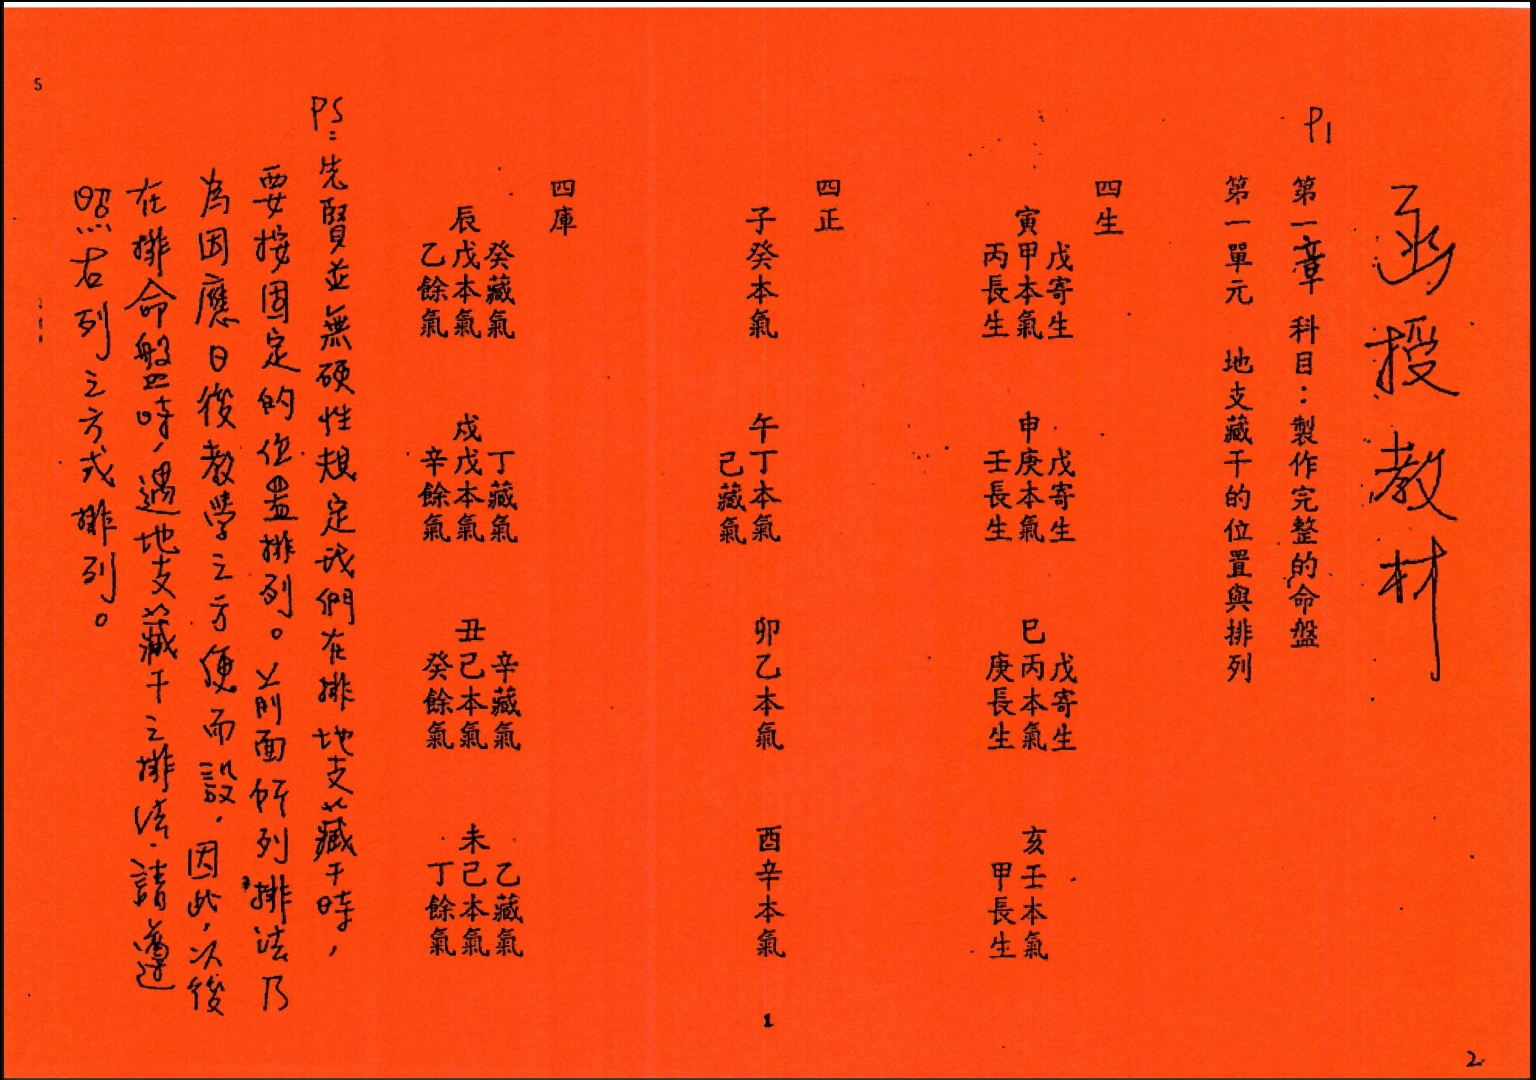 函授教材
P1
第一章 科目：製作完整的命盤
第一單元 地支藏干的位置與排列
四生
戊寄生
寅甲本氣
丙長生
戊寄生
申庚本氣
壬長生
戊寄生
巳丙本氣
庚長生
亥壬本氣
甲長生
四正
子癸本氣
午丁本氣
己藏氣
卯乙本氣
酉辛本氣
四庫
癸藏氣
辰戊本氣
乙餘氣
丁藏氣
戍戊本氣
辛餘氣
辛藏氣
丑己本氣
癸餘氣
乙藏氣
未己本氣
丁餘氣
PS：先賢並無硬性規定我們在排地支藏干時，
要按固定的位置排列。前面所列排法乃
為因應日後教學之方便而設，因此，以後
在排命盤時，遇地支藏干之排法，請遵
照右列之方式排列。
5
1
2